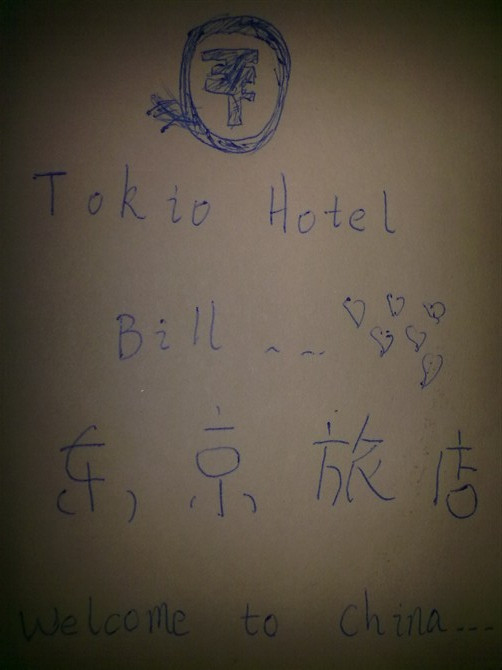 Tokio Hotel
Bill ~ ~ ~
东京旅店
Welcome to China...